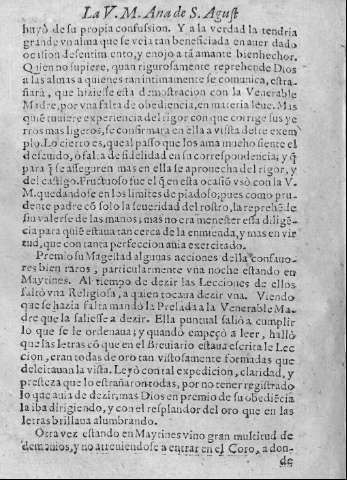 La V. M. Ana de S. Agust
huyò de su propia confussion. Y a la verdad la tendria
grande vn alma que se veia tan beneficiada en auer dado
ocasion de sentimiento, y enojo a tã amante bienhechor.
Quien no supiere, quan rigurosamente reprehende Dios
a las almas a quienes tan intimamente se comunica, estra-
ñarà, que hiziesse esta demostracion con la Venerable
Madre, por vna falta de obediencia, en materia leue. Mas
quiẽ tuuiere experiencia del rigor con que corrige sus ye-
rros mas ligeros, se confirmarà en ella a vista deste exem
plo. Lo cierto es, que al passo que los ama mucho siente el
descuido, ò falta de fidelidad en su correspondencia; y q̃
para q̃ se asseguren mas en ella se aprouecha del rigor, y
del castigo. Fructuoso fue el q̃ en esta ocasiõ vsò con la V.
M. quedandose en los limites de piadoso; pues como pru-
dente padre cõ solo la seueridad del rostro, la reprehẽde
sin valerse de las manos; mas no era menester essa diligẽ-
cia para quiẽ estaua tan cerca de la enmienda, y mas en vir
tud, que con tanta perfeccion auia exercitado.
Premio su Magestad algunas acciones della con fauo-
res bien raros, particularmente vna noche estando en
Maytines. Al tiempo de dezir las Lecciones de ellos
faltò vna Religiosa, a quien tocaua dezir vna. Viendo
que se hazia falta mandò la Prelada a la Venerable Ma-
dre que la saliesse a dezir. Ella puntual saliò a cumplir
lo que se le ordenaua; y quando empeçò a leer, hallò
que las letras cõ que en el Breuiario estaua escrita le Lec
cion, eran todas de oro tan vistosamente formadas que
deleitauan la vista. Leyò con tal expedicion, claridad, y
presteza que lo estrañaron todas, por no tener registrado
lo que auia de dezir; mas Dios en premio de su obediẽcia
la iba dirigiendo, y con el resplandor del oro que en las
letras brillaua alumbrando.
Otra vez estando en Maytines vino gran multitud de
demonios, y no atreuiendose a entrar en el Coro, a don-
de